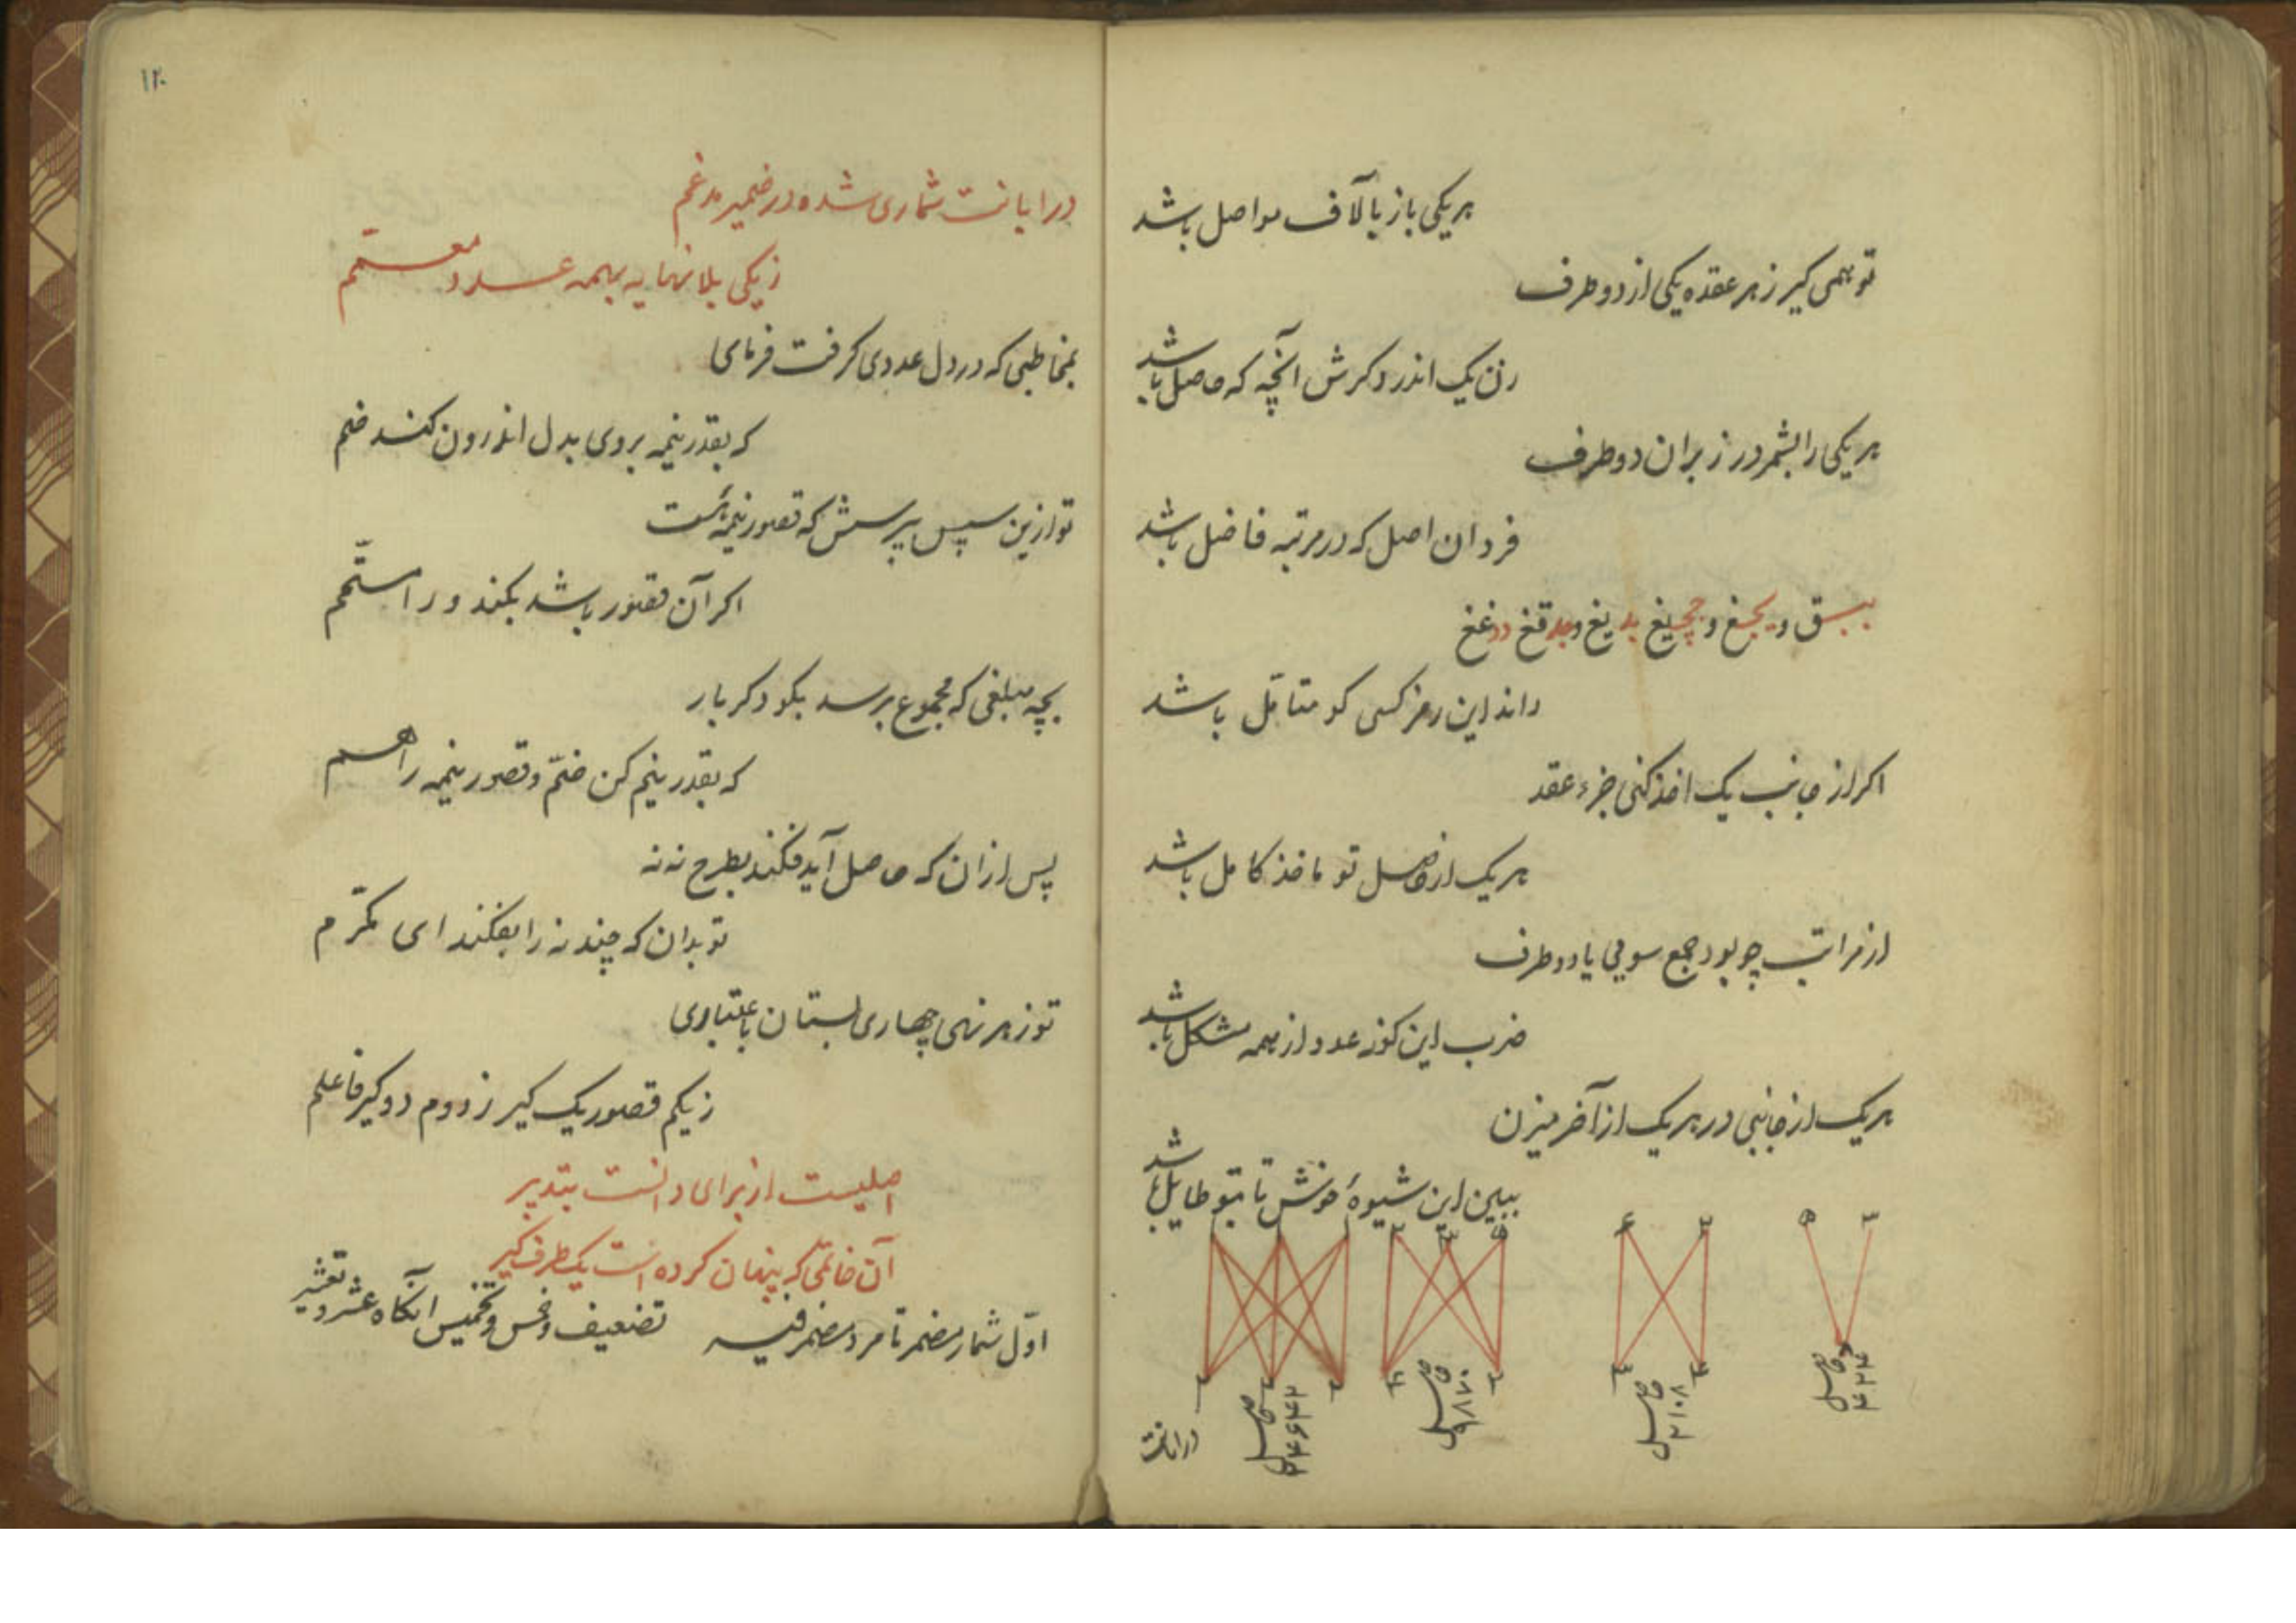 هر یکی باز بآلاف مواصل باشد
تو همی گیر ز هر عقده یکی از دو طرف
زن یک اندر دکرش آنچه که حاصل باشد
هر یکی را بشمر در زبران دو طرف
فرد ان اصل که در مرتبه فاضل باشد
ببسق و یجغ و ججیغ بد یغ و قغ دد غغ
داند این رمز کسی کو متأمل باشد
اکر از جانب یک اخذ کنی جزء عقد
هر یک از حاصل تو ماخذ کامل باشد
از مراتب چو بود جمع سویی یا دو طرف
ضرب این کونه عدد از همه مشکل باشد
هر یک از جانبی در هر یک از آخر میزن
ببین این شیوهٔ خوش تا بتو طایل باشد
۳ ۵
۲ ۴
حاصل
۲۱۰۸
حاصل
۹۸۷۰
حاصل
در ابانت
۱۲۰
در ابانت شماری شده در ضمیر مدغم
ز یکی بلا نهایه بهمه عدد معمّم
بمخاطبی که در دل عددی کرفت فرمای
که بقدر نیمه بروی بدل اندرون کند ضم
تو ازین سپس بپرسش که قصور نیمه‌ئست
اکر آن قصور باشد بکند ورا متمّم
بچه مبلغی که مجموع برسد بکو دکر بار
که بقدر نیم کن ضمّ و قصور نیمه را هم
پس ازان که حاصل آید فکند بطرح نه نه
تو بدان که چند نه را بفکند ای مکرّم
تو ز هر نهی چهاری بستان باعتباری
ز یکم قصور یک کیر ز دوم دو کیر فاعلم
اصلیست از برای دانست بتدبیر
آن خاتمی که پنهان کرده است یکطرف کیر
اوّل شمار مضمر تا مرد مضمر فیه تضعیف و خمس و تخمیس آنکاه عشر و تعشیر